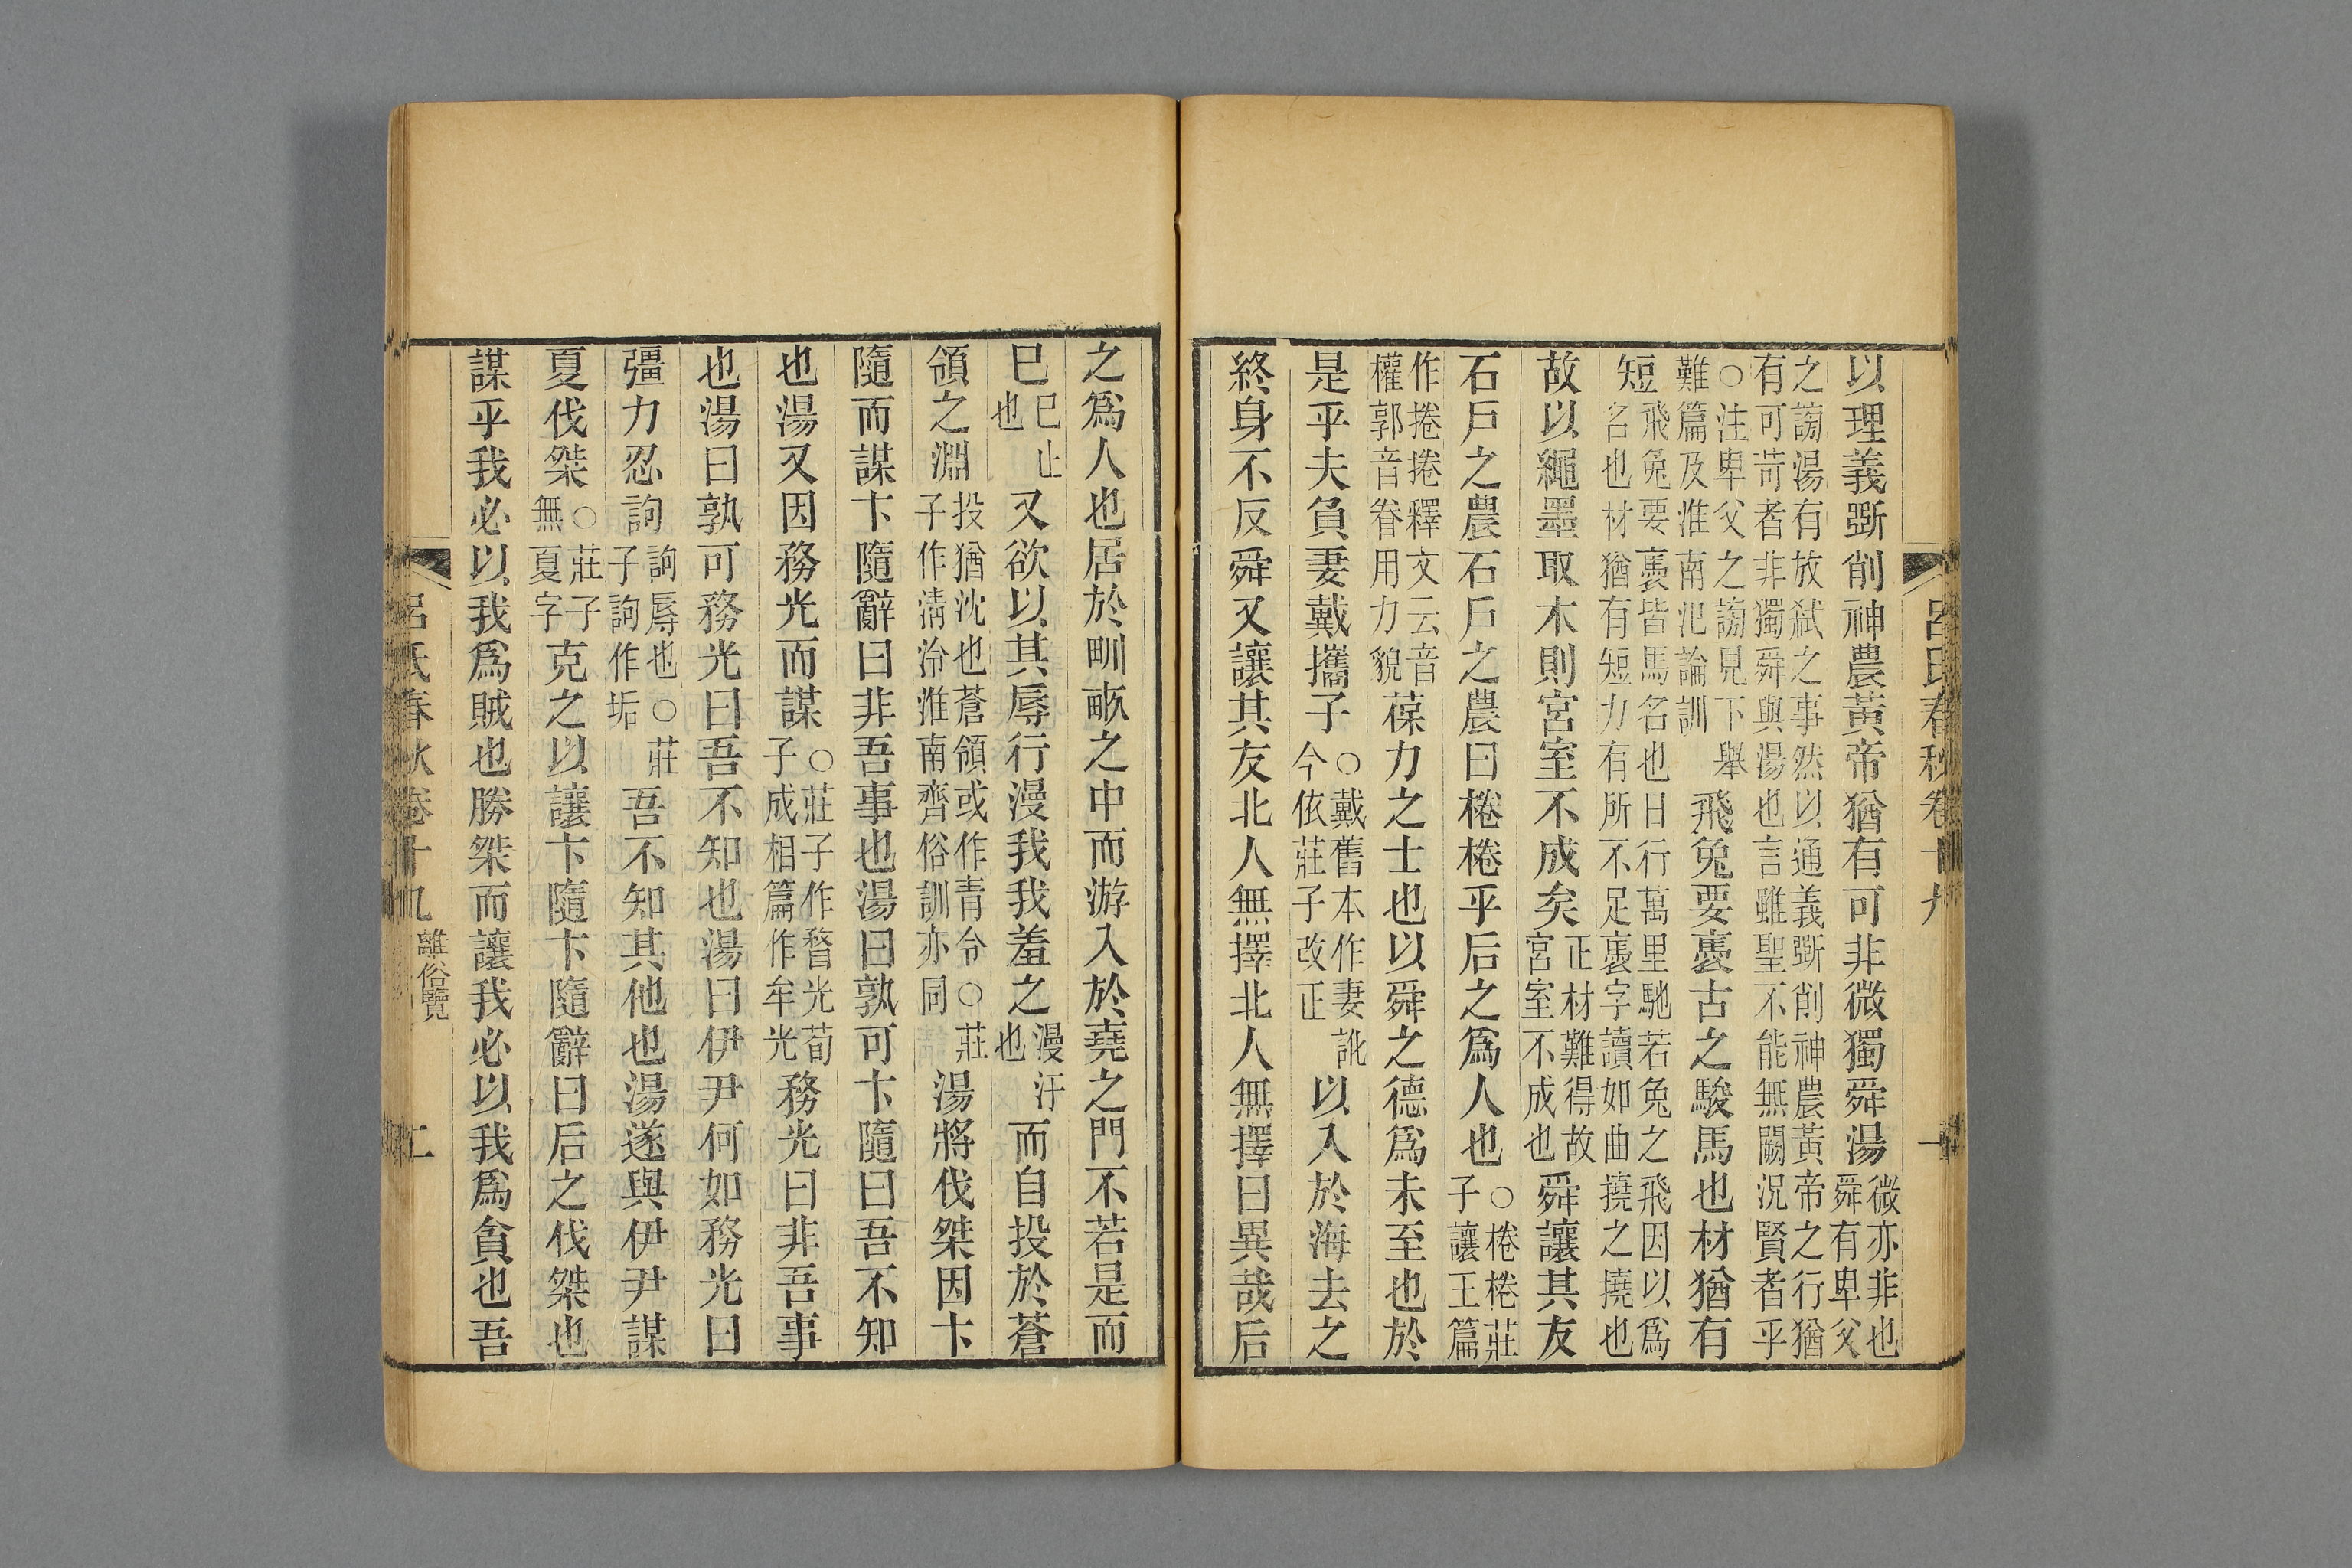 呂氏春秋卷十九
以理義斲削神農黃帝猶有可非微獨舜湯微亦非也舜有卑父
之謗湯有放弒之事然以通義斲削神農黃帝之行猶
有可苛者非獨舜與湯也言雖聖不能無闕況賢者乎
○注卑父之謗見下舉難篇及淮南氾論訓飛兔要褭古之駿馬也材猶有
短飛兔要褭皆馬名也日行萬里馳若兔之飛因以爲名也材猶有短力有所不足褭字讀如曲撓之撓也
故以繩墨取木則宮室不成矣正材難得故宮室不成也舜讓其友
石戶之農石戶之農曰棬棬乎后之爲人也○棬棬莊子讓王篇
作捲捲釋文云音權郭音眷用力貌葆力之士也以舜之德爲未至也於
是乎夫負妻戴攜子○戴舊本作妻訛今依莊子改正以入於海去之
終身不反舜又讓其友北人無擇北人無擇曰異哉后
之爲人也居於甽畝之中而游入於堯之門不若是而
已已止也又欲以其辱行漫我我羞之漫汙也而自投於蒼
領之淵投猶沈也蒼領或作青令○莊子作淸泠淮南齊俗訓亦同湯將伐桀因卞
隨而謀卞隨辭曰非吾事也湯曰孰可卞隨曰吾不知
也湯又因務光而謀○莊子作瞀光荀子成相篇作牟光務光曰非吾事
也湯曰孰可務光曰吾不知也湯曰伊尹何如務光曰
彊力忍詢詢辱也○莊子詢作垢吾不知其他也湯遂與伊尹謀
夏伐桀○莊子無夏字克之以讓卞隨卞隨辭曰后之伐桀也
謀乎我必以我爲賊也勝桀而讓我必以我爲貪也吾
呂氏春秋卷十九 離俗覽 二